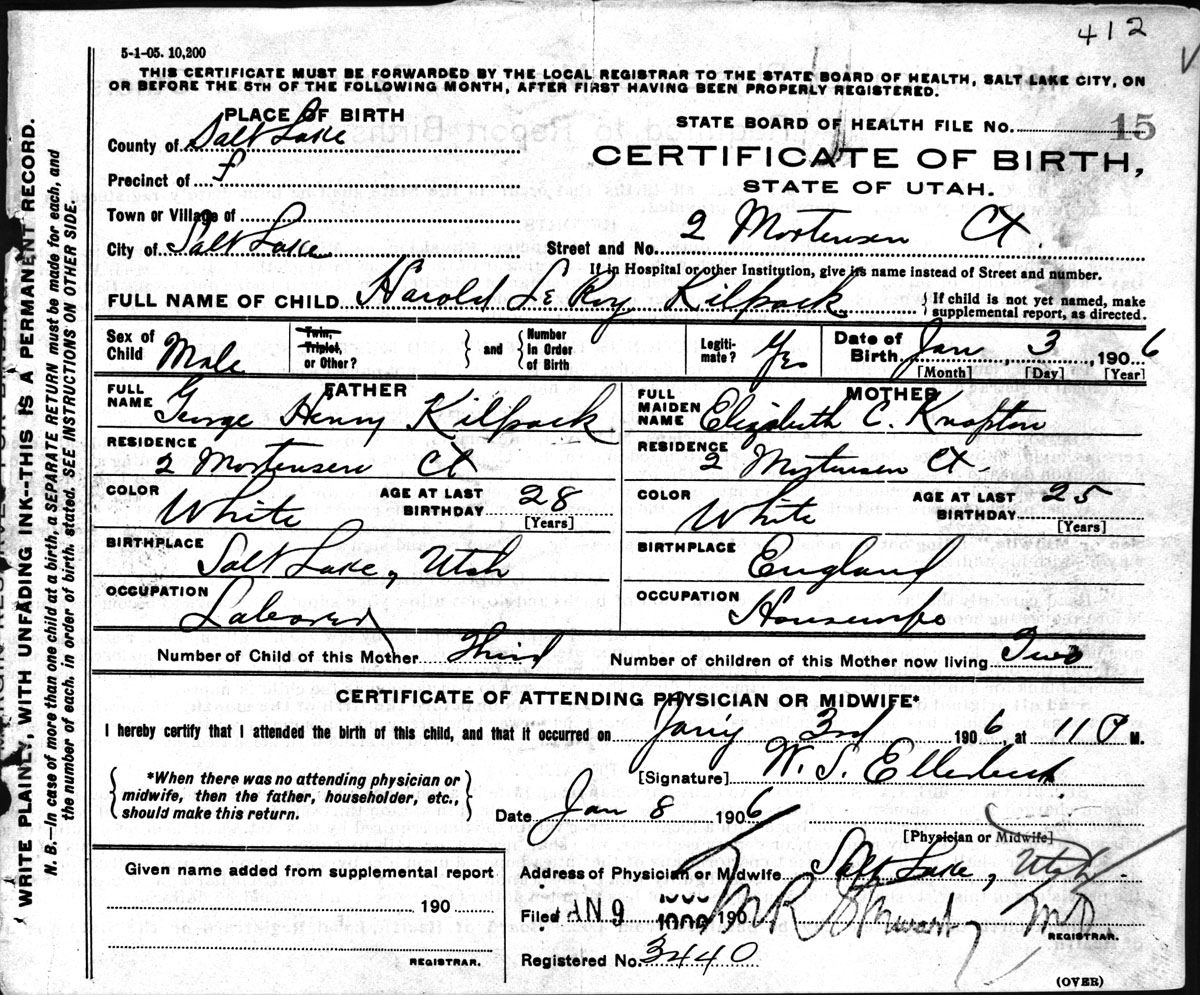 412
5-1-05. 10,200
THIS CERTIFICATE MUST BE FORWARDED BY THE LOCAL REGISTRAR TO THE STATE BOARD OF HEALTH, SALT LAKE CITY, ON
OR BEFORE THE 5TH OF THE FOLLOWING MONTH, AFTER FIRST HAVING BEEN PROPERLY REGISTERED.
PLACE OF BIRTH
STATE BOARD OF HEALTH FILE No. 15
County of Salt Lake
CERTIFICATE OF BIRTH,
Precinct of
STATE OF UTAH.
Town or Village of
City of Salt Lake Street and No. 2 Mortensen Ct.
If in Hospital or other Institution, give its name instead of Street and number.
FULL NAME OF CHILD Harold Le Roy Kilpack { If child is not yet named, make supplemental report, as directed.
Sex of Child Male Twin, Triplet, or Other? } and { Number In Order of Birth Legiti-mate? Yes Date of Birth Jan 3, 1906
[Month] [Day] [Year]
FATHER MOTHER
FULL NAME George Henry Kilpack FULL MAIDEN NAME Elizabeth C. Knapton
RESIDENCE 2 Mortensen Ct RESIDENCE 2 Mortensen Ct.
COLOR White AGE AT LAST BIRTHDAY 28 [Years] COLOR White AGE AT LAST BIRTHDAY 25 [Years]
BIRTHPLACE Salt Lake, Utah BIRTHPLACE England
OCCUPATION Laborer OCCUPATION Housewife
Number of Child of this Mother Third Number of children of this Mother now living Two
CERTIFICATE OF ATTENDING PHYSICIAN OR MIDWIFE*
I hereby certify that I attended the birth of this child, and that it occurred on Jany 3rd 1906, at 11 P M.
{ *When there was no attending physician or midwife, then the father, householder, etc., should make this return. }
[Signature] W. S. Ellerbeck
Date Jan 8 1906
[Physician or Midwife]
Given name added from supplemental report
Address of Physician or Midwife Salt Lake, Utah
190
Filed JAN 9 190 M R Stewart M D
REGISTRAR.
REGISTRAR.
Registered No. 3440
(OVER)
WRITE PLAINLY, WITH UNFADING INK--THIS IS A PERMANENT RECORD.
N. B.--In case of more than one child at a birth, a SEPARATE RETURN must be made for each, and
the number of each, in order of birth, stated. SEE INSTRUCTIONS ON OTHER SIDE.